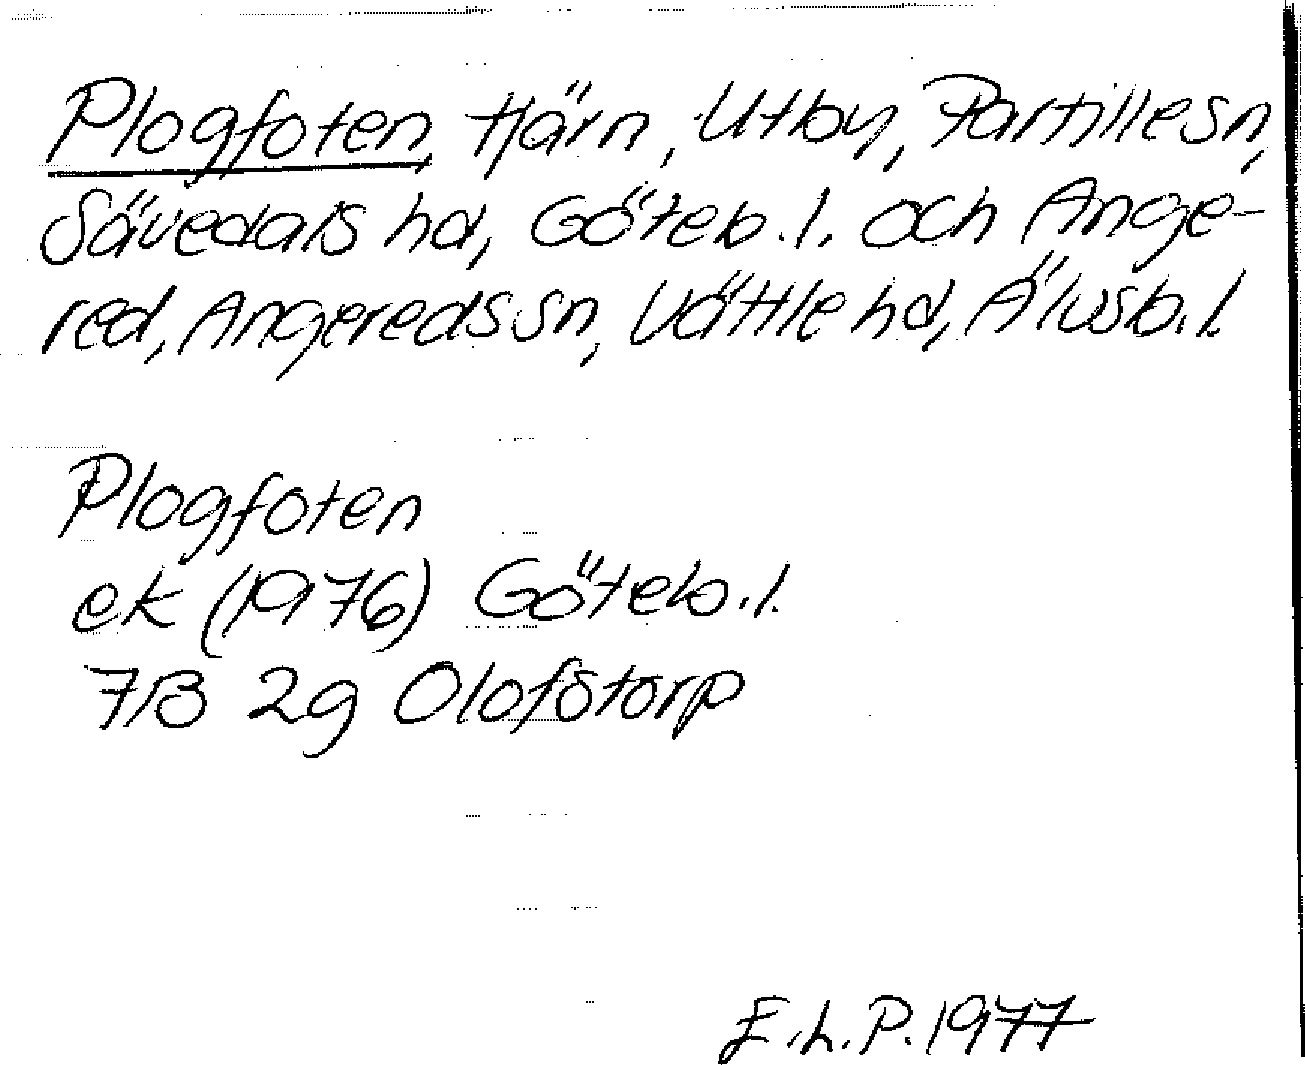 Plogfoten, tjärn, Utby, Partille sn,
Sävedals hd, Göteb. l. och Ange-
red, Angereds sn, Vättle hd, Älvsb. l.
Plogfoten
ek (1976) Göteb. l.
7B 2g Olofstorp
E.L.P. 1977